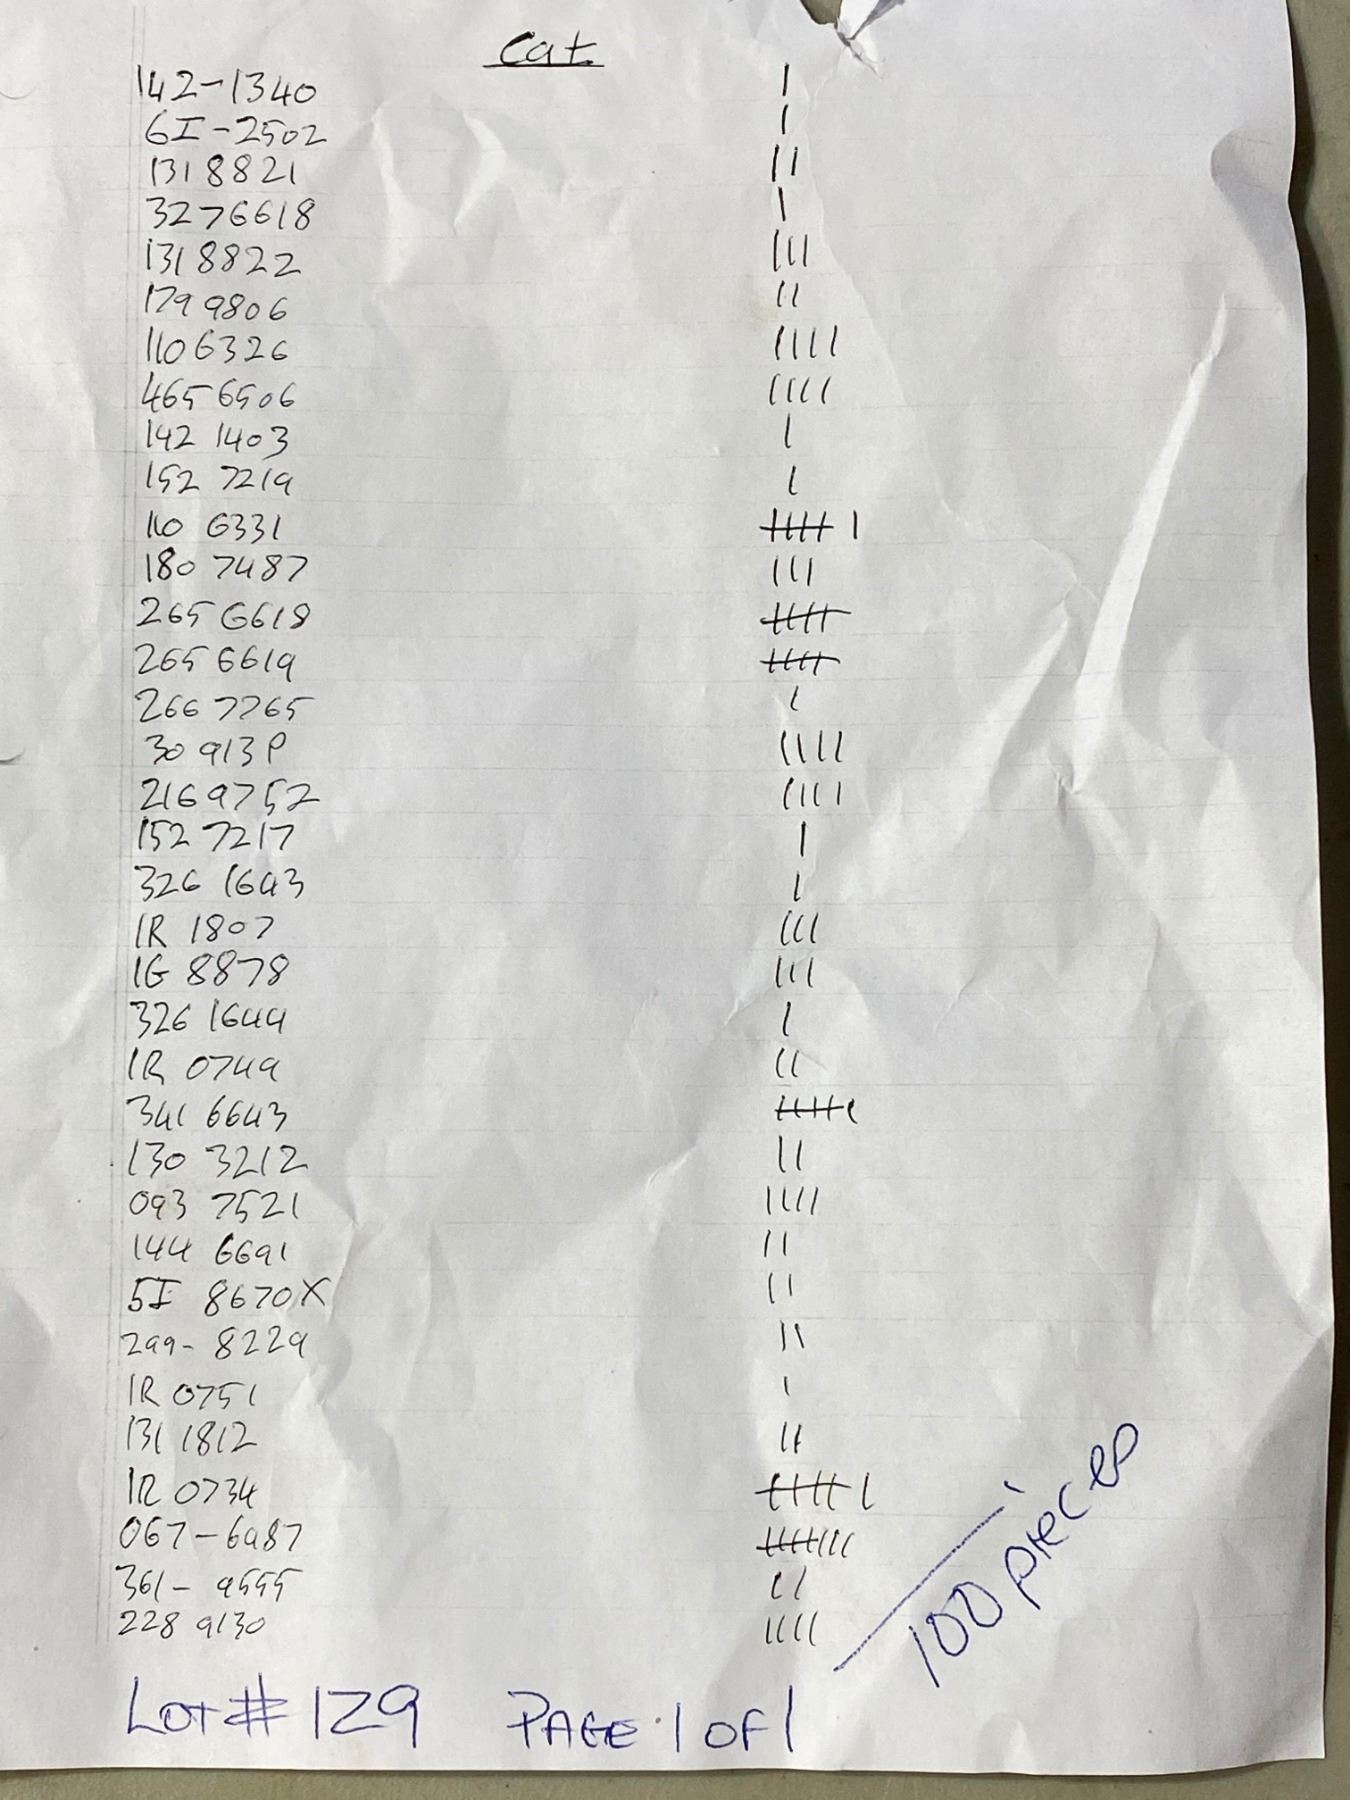 Cat
142-1340 |
6I-2502 |
1318821 ||
3276618 |
1318822 |||
179 9806 ||
110 6326 ||||
465 6506 ||||
142 1403 |
152 7219 |
110 6331 ~~||||~~ |
180 7487 |||
265 6618 ~~||||~~
265 6619 ~~||||~~
266 7765 |
30 913P ||||
2169752 ||||
152 7217 |
326 1643 |
1R 1807 |||
1G 8878 |||
326 1644 |
1R 0749 ||
341 6643 ~~||||~~ |
130 3212 ||
093 7521 ||||
144 6691 ||
5I 8670X ||
299-8229 ||
1R 0751 |
131 1812 ||
1R 0734 ~~||||~~ |
067-6987 ~~||||~~ |||
361-9555 ||
228 9130 ||||
100 pieces
LOT# 129 PAGE 1 OF 1